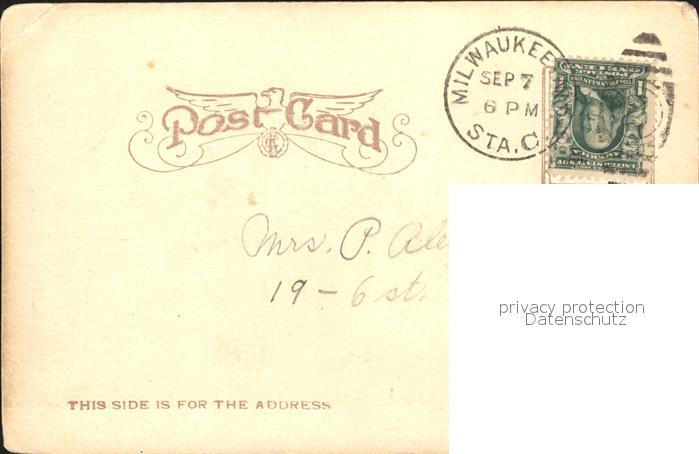 MILWAUKEE
SEP 7
6 PM
STA. C.
Post Card
Mrs. P.
19 - 6 st.
privacy protection
Datenschutz
THIS SIDE IS FOR THE ADDRESS